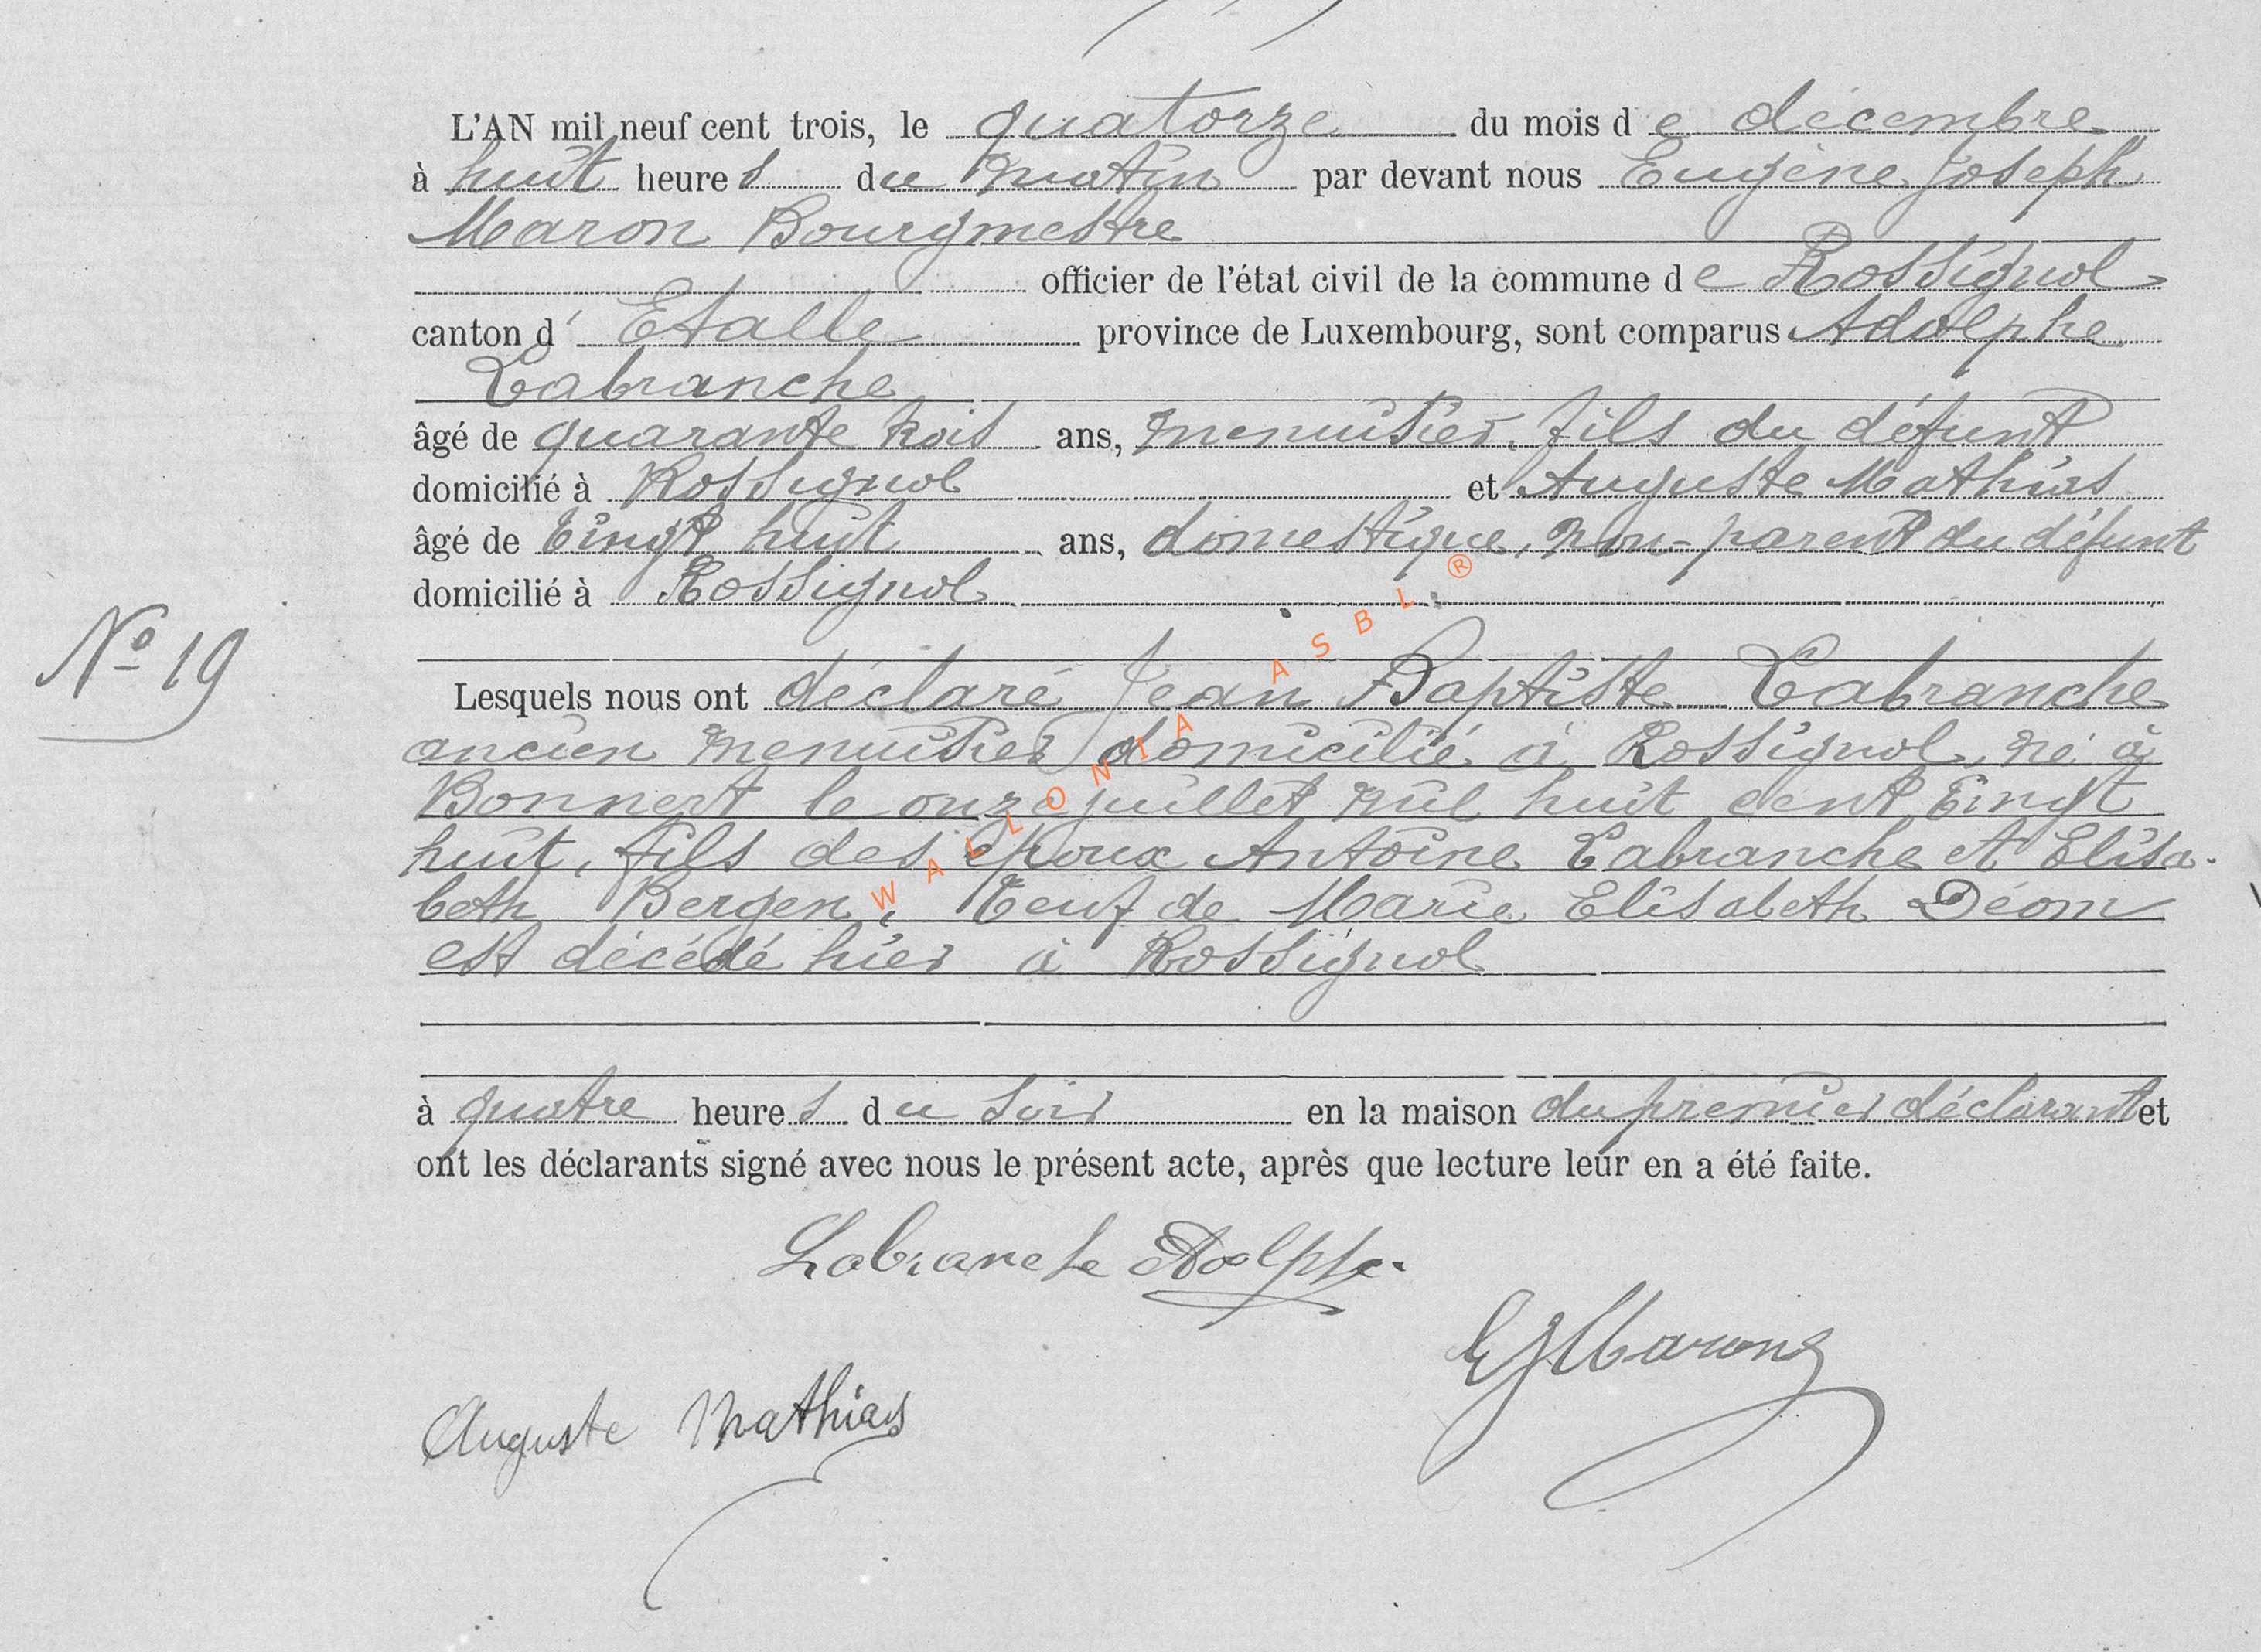 L'AN mil neuf cent trois, le quatorze du mois de décembre
à huit heures du matin par devant nous Eugène Joseph
Maron Bourgmestre
officier de l'état civil de la commune de Rossignol
canton d' Etalle province de Luxembourg, sont comparus Adolphe
Labranche
âgé de quarante trois ans, menuisier, fils du défunt
domicilié à Rossignol et Auguste Mathias
âgé de vingt huit ans, domestique, non-parent du défunt
domicilié à Rossignol
N° 19
Lesquels nous ont déclaré Jean Baptiste Labranche
ancien menuisier domicilié à Rossignol, né à
Bonnert le onze juillet mil huit cent vingt
huit, fils des époux Antoine Labranche et Elisa-
beth Bergen, veuf de Marie Elisabeth Déom
est décédé hier à Rossignol
à quatre heures du soir en la maison du premier déclarant et
ont les déclarants signé avec nous le présent acte, après que lecture leur en a été faite.
Labranche Adolphe.
EJMaron
Auguste Mathias
WALLONIA ASBL ®